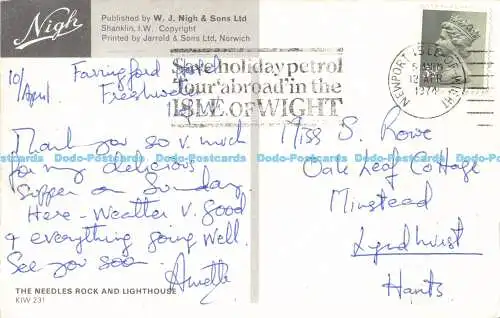 Nigh
Published by W. J. Nigh & Sons Ltd
Shanklin, I.W. Copyright
Printed by Jarrold & Sons Ltd, Norwich
10/April.
Farringford Hotel
Freshwater
I.O.W.
Save holiday petrol
Tour 'abroad' in the
ISLE OF WIGHT
NEWPORT ISLE OF WIGHT
12 APR
1974
Thank you so v. much
for my delicious
supper on Sunday.
Here - Weather v. good
& everything going well.
See you soon.
Annette
Miss S. Rowe
Oak Leaf Cottage
Minstead
Lyndhurst
Hants
Dodo-Postcards Dodo-Postcards Dodo-Postcards Dodo-Postcards Dodo-Postcards
THE NEEDLES ROCK AND LIGHTHOUSE
KIW 231